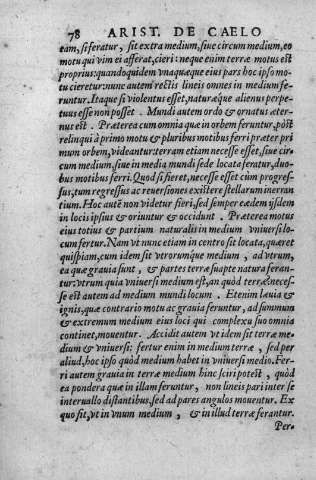 78 ARIST. DE CAELO
eam, si feratur, sit extra medium, siue circum medium, eo
motu qui vim ei afferat, cieri: neque enim terræ motus est
proprius: quandoquidem vnaquæque eius pars hoc ipso mo-
tu cieretur: nunc autem rectis lineis omnes in medium fe-
runtur. Itaque si violentus esset, naturæque alienus perpe-
tuus esse non posset. Mundi autem ordo & ornatus æter-
nus est. Præterea cum omnia quæ in orbem feruntur, pōst
relinqui à primo motu & pluribus motibus ferri præter pri
mum orbem, videantur: terram etiam necesse esset, siue cir
cum medium, siue in media mundi sede locata feratur, duo-
bus motibus ferri. Quod si fieret, necesse esset cùm progres-
sus, tum regressus ac reuersiones existere stellarum ineran
tium. Hoc autē non videtur fieri, sed semper eædem ijsdem
in locis ipsius & oriuntur & occidunt. Præterea motus
eius totius & partium naturalis in medium vniuersi lo-
cum fertur. Nam vt nunc etiam in centro sit locata, quæret
quispiam, cum idem sit vtrorumque medium, ad vtrum,
ea quæ grauia sunt, & partes terræ suapte natura feran-
tur: vtrum quia vniuersi medium est, an quod terræ: neces-
se est autem ad medium mundi locum. Etenim læuia &
ignis, quæ contrario motu ac grauia feruntur, ad summum
& extremum medium eius loci qui complexu suo omnia
continet, mouentur. Accidit autem vt idem sit terræ me-
dium & vniuersi: fertur enim in medium terræ, sed per
aliud, hoc ipso quòd medium habet in vniuersi medio. Fer-
ri autem grauia in terræ medium hinc sciri potest, quòd
ea pondera quæ in illam feruntur, non lineis pari inter se
interuallo distantibus, sed ad pares angulos mouentur. Ex
quo sit, vt in vnum medium, & in illud terræ ferantur.
Per-